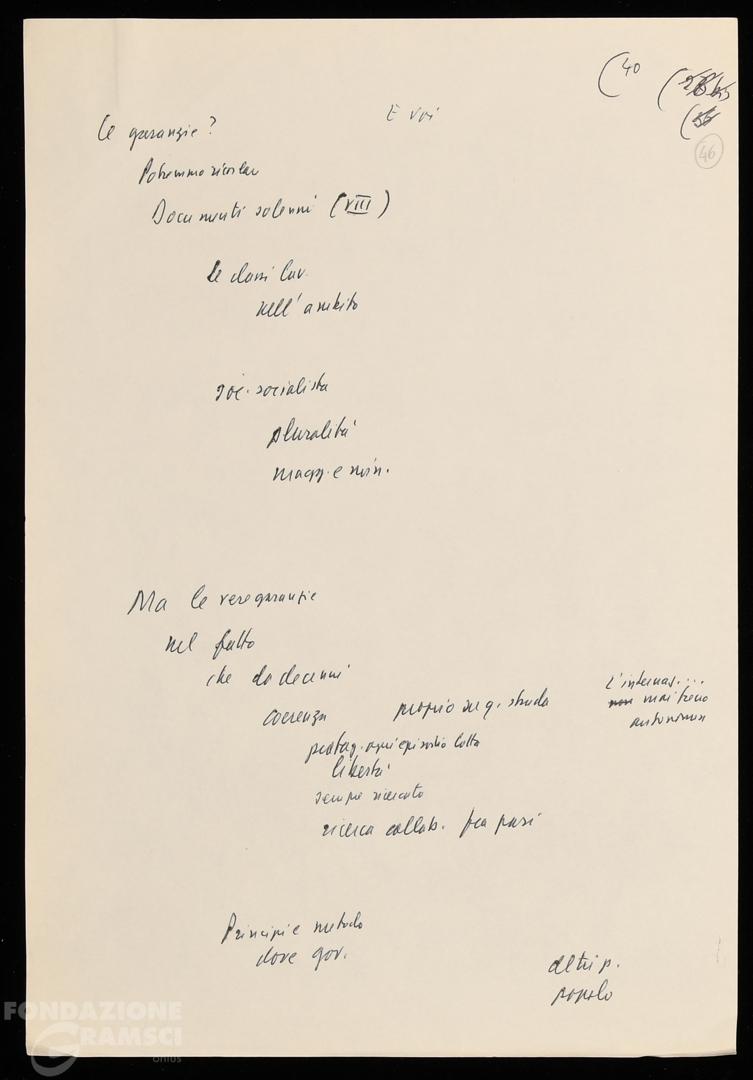 (40
46
E voi
Le garanzie?
Potremmo ricordar
Documenti solenni (VIII)
Le classi lav.
nell'ambito
soc. socialista
pluralità
magg. e min.
Ma le vere garanzie
nel fatto
che da decenni
coerenza proprio su q. strada
L'internaz....
non mai freno
autonomia
protag. ogni episodio lotta
libertà
sempre ricercato
ricerca collab. fra pari
Principi e metodo
dove gov.
altri p.
popolo
FONDAZIONE
GRAMSCI
onlus